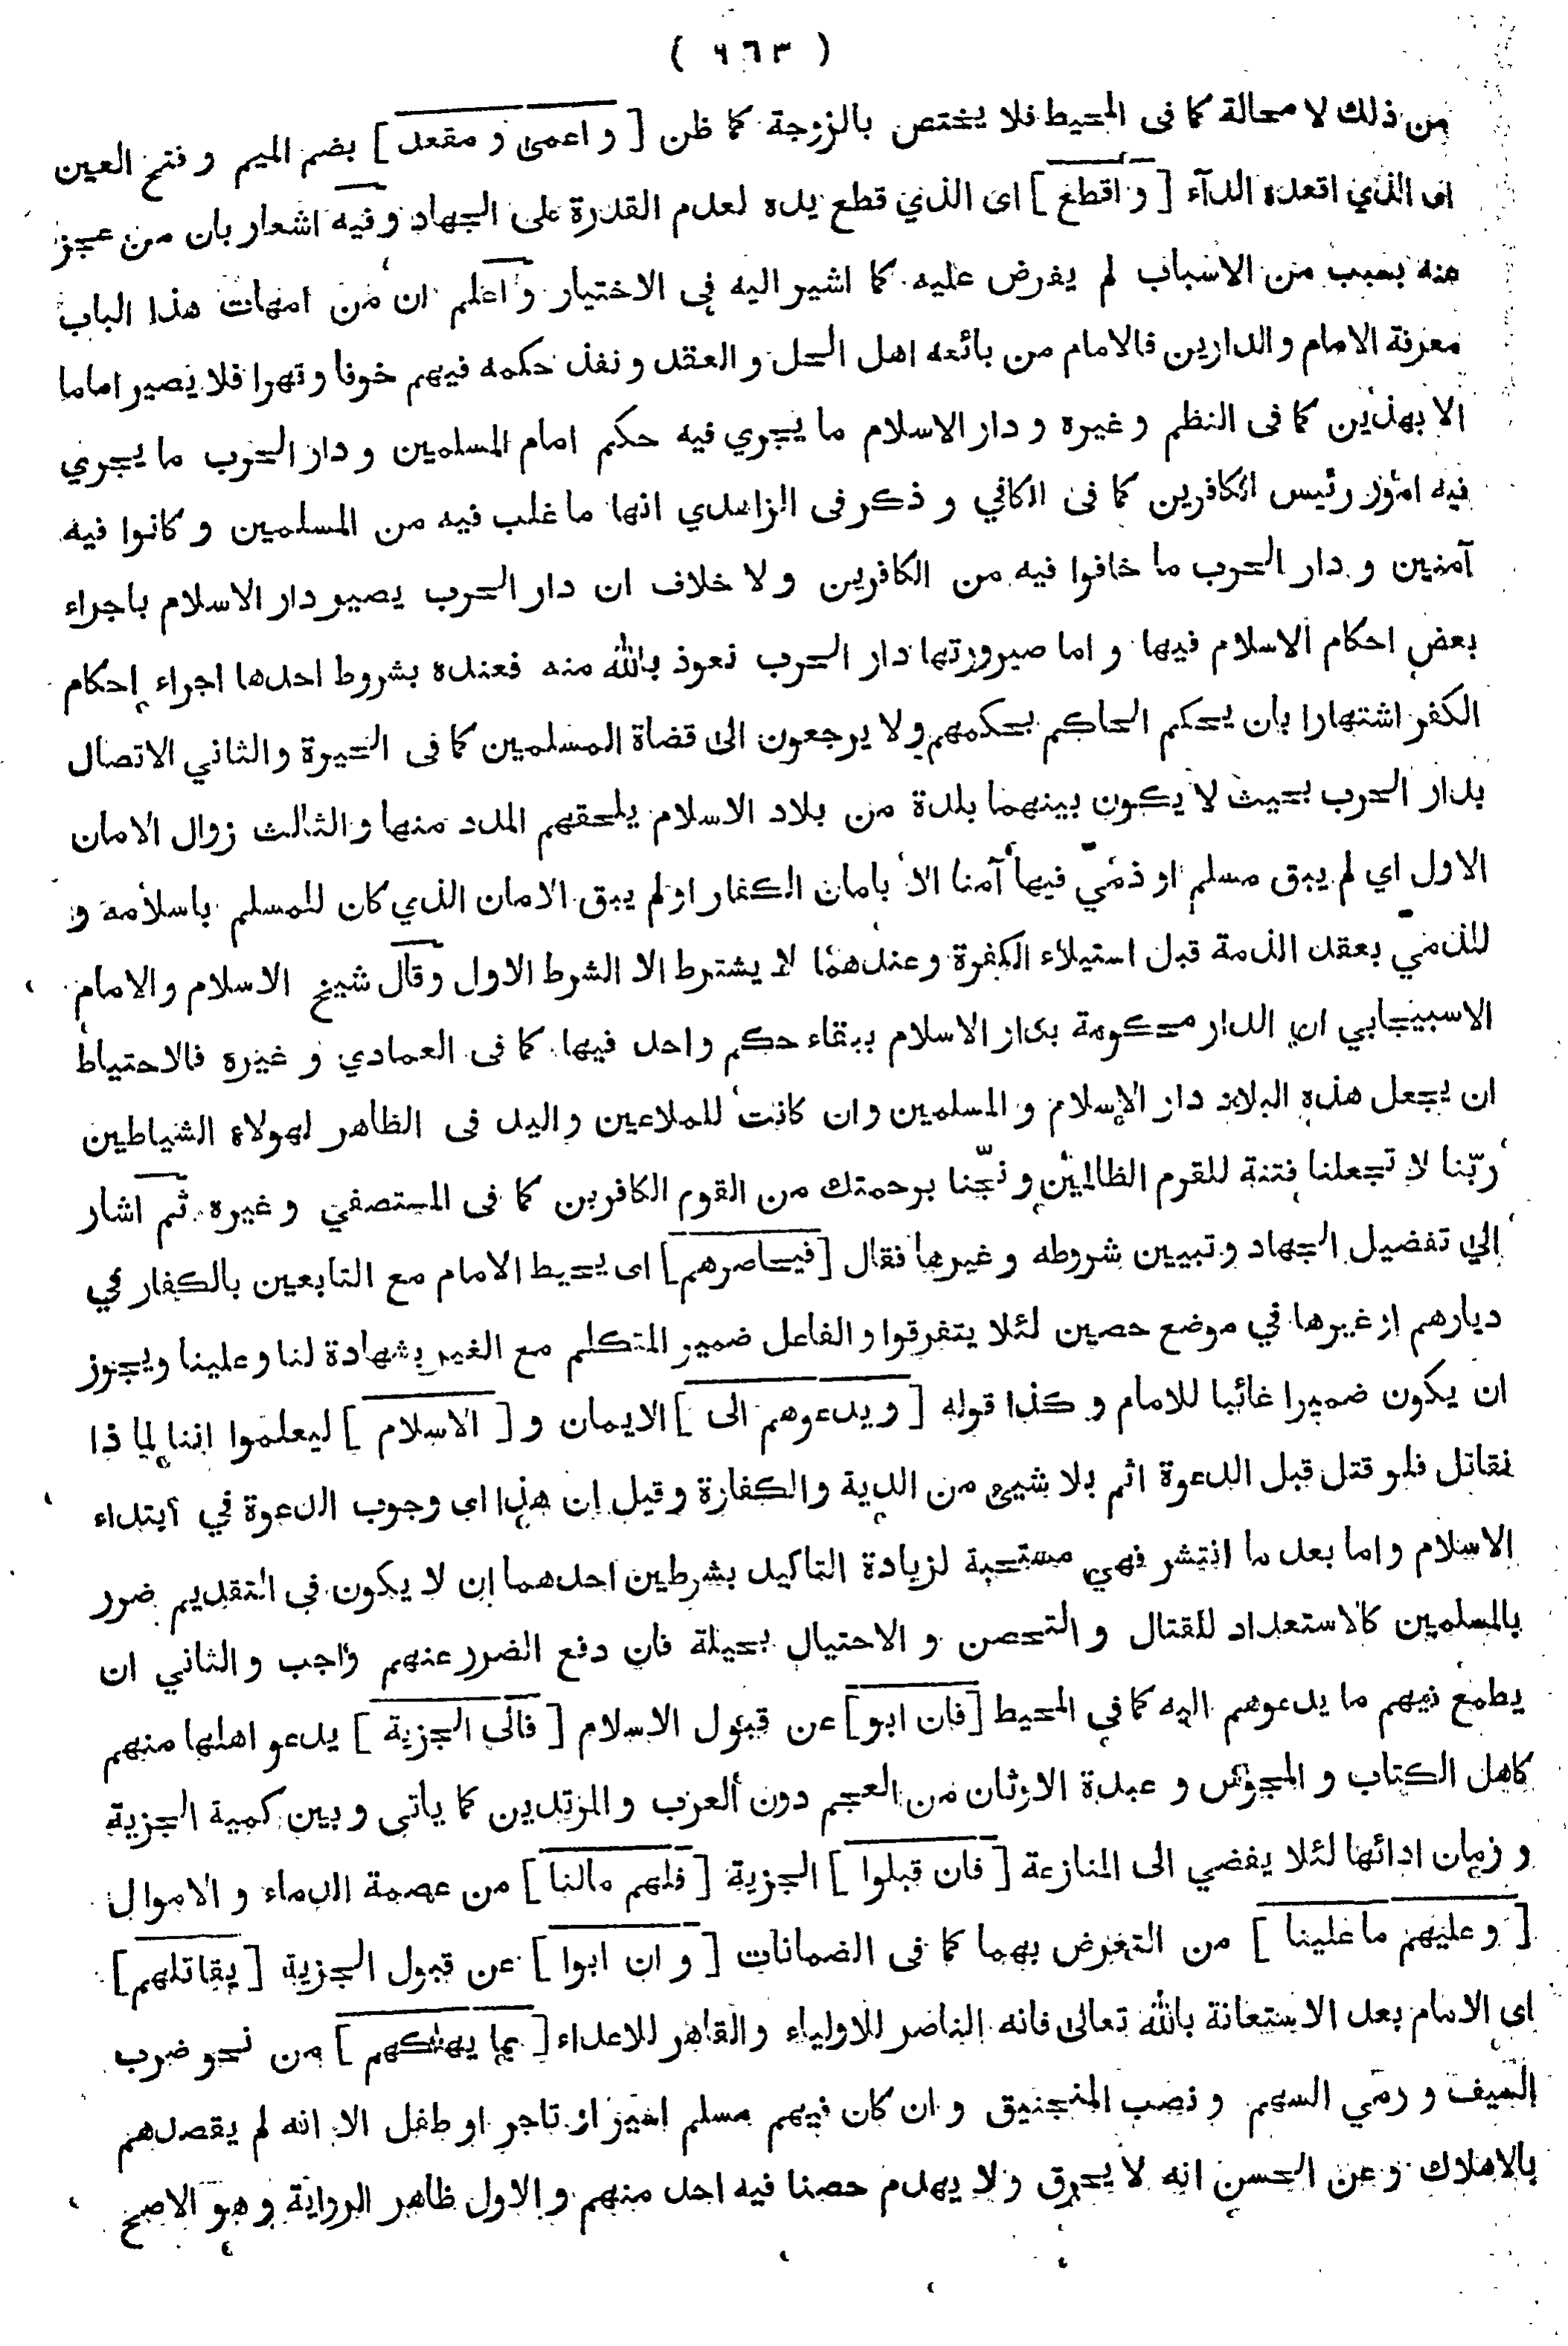 ( ٦٦٣ )
من ذلك لا محالة كما فى المحيط فلا يختص بالزوجة كما ظن [ و اعمى و مقعد ] بضم الميم و فتح العين
اى الذي اقعده الدآء [ و اقطع ] اى الذي قطع يده لعدم القدرة على الجهاد و فيه اشعار بان من عجز
عنه بسبب من الاسباب لم يفرض عليه كما اشير اليه في الاختيار و اعلم ان من امهات هذا الباب
معرفة الامام و الدارين فالامام من بائعه اهل الحل و العقد و نفذ حكمه فيهم خوفا و قهرا فلا يصير اماما
الا بهذين كما فى النظم و غيره و دار الاسلام ما يجري فيه حكم امام المسلمين و دار الحرب ما يجري
فيه امور رئيس الكافرين كما فى الكافي و ذكر فى الزاهدي انها ما غلب فيه من المسلمين و كانوا فيه
آمنين و دار الحرب ما خافوا فيه من الكافرين و لا خلاف ان دار الحرب يصير دار الاسلام باجراء
بعض احكام الاسلام فيها و اما صيرورتها دار الحرب نعوذ بالله منه فعنده بشروط احدها اجراء احكام
الكفر اشتهارا بان يحكم الحاكم بحكمهم و لا يرجعون الى قضاة المسلمين كما فى الحيرة و الثاني الاتصال
بدار الحرب بحيث لا يكون بينهما بلدة من بلاد الاسلام يلحقهم المدد منها و الثالث زوال الامان
الاول اي لم يبق مسلم او ذمّي فيها آمنا الا بامان الكفار او لم يبق الامان الذي كان للمسلم باسلامه و
للذمّي بعقد الذمة قبل استيلاء الكفرة و عندهما لا يشترط الا الشرط الاول و قال شيخ الاسلام و الامام
الاسبيجابي ان الدار محكومة بدار الاسلام ببقاء حكم واحد فيها كما فى العمادي و غيره فالاحتياط
ان يجعل هذه البلاد دار الإسلام و المسلمين و ان كانت للملاعين و اليد فى الظاهر لهولاء الشياطين
ربّنا لا تجعلنا فتنة للقوم الظالمين و نجّنا برحمتك من القوم الكافرين كما فى المستصفي و غيره ثم اشار
إلى تفضيل الجهاد و تبيين شروطه و غيرها فقال [ فيحاصرهم ] اى يحيط الامام مع التابعين بالكفار في
ديارهم او غيرها في موضع حصين لئلا يتفرقوا و الفاعل ضمير المتكلم مع الغير بشهادة لنا و علينا و يجوز
ان يكون ضميرا غائبا للامام و كذا قوله [ و يدعوهم الى ] الايمان و [ الاسلام ] ليعلموا اننا لما ذا
نقاتل فلو قتل قبل الدعوة اثم بلا شيئ من الدية و الكفارة و قيل ان هذا اى وجوب الدعوة في ابتداء
الاسلام و اما بعد ما انتشر فهي مستحبة لزيادة التاكيد بشرطين احدهما ان لا يكون فى التقديم ضرر
بالمسلمين كالاستعداد للقتال و التحصن و الاحتيال بحيلة فان دفع الضرر عنهم واجب و الثاني ان
يطمع فيهم ما يدعوهم اليه كما في المحيط [ فان ابو ] عن قبول الاسلام [ فالى الجزية ] يدعو اهلها منهم
كاهل الكتاب و المجوس و عبدة الاوثان من العجم دون العرب و المرتدين كما ياتى و بين كمية الجزية
و زمان ادائها لئلا يفضي الى المنازعة [ فان قبلوا ] الجزية [ فلهم مالنا ] من عصمة الدماء و الاموال
[ و عليهم ما علينا ] من التعرض بهما كما فى الضمانات [ و ان ابوا ] عن قبول الجزية [ يقاتلهم ]
اى الامام بعد الاستعانة بالله تعالى فانه الناصر للاولياء و القاهر للاعداء [ بما يهلكهم ] من نحو ضرب
السيف و رمي السهم و نصب المنجنيق و ان كان فيهم مسلم اسير او تاجر او طفل الا انه لم يقصدهم
بالاهلاك و عن الحسن انه لا يحرق و لا يهدم حصنا فيه احد منهم و الاول ظاهر الرواية و هو الاصح